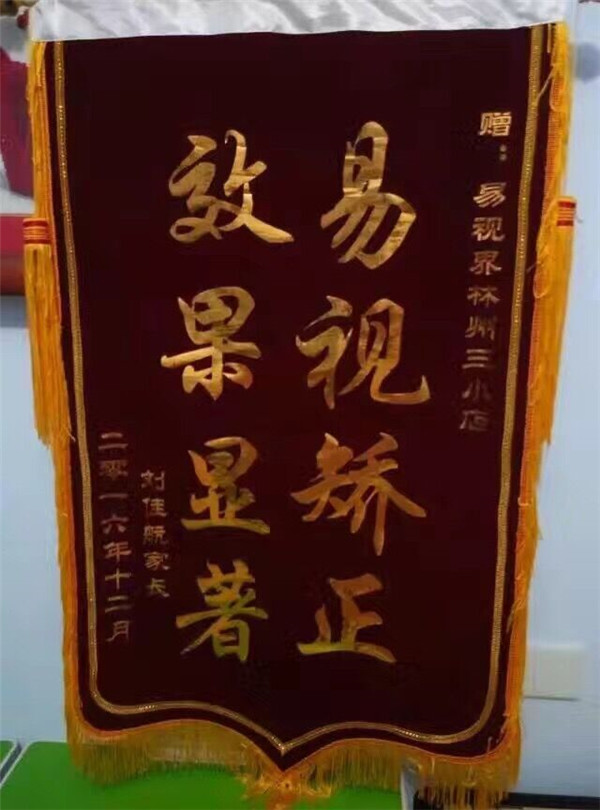 赠：易视界林州三小店
易视矫正
效果显著
刘佳航家长
二零一六年十二月